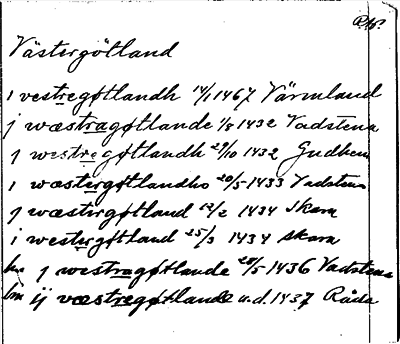 Västergötland
i vestregøtlandh 14/1 1467 Värmland
j wæstragøtlande 1/8 1432 Vadstena
j westregøtlandh 29/10 1432 Gudhem
i wæstirgøtlandho 20/5 1433 Vadstena
j wæstirgøtland 12/2 1434 Skara
i westirgøtland 25/3 1434 Skara
j westragøtlande 28/5 1436 Vadstena
ij væstregøtlande u.d. 1437 Råda